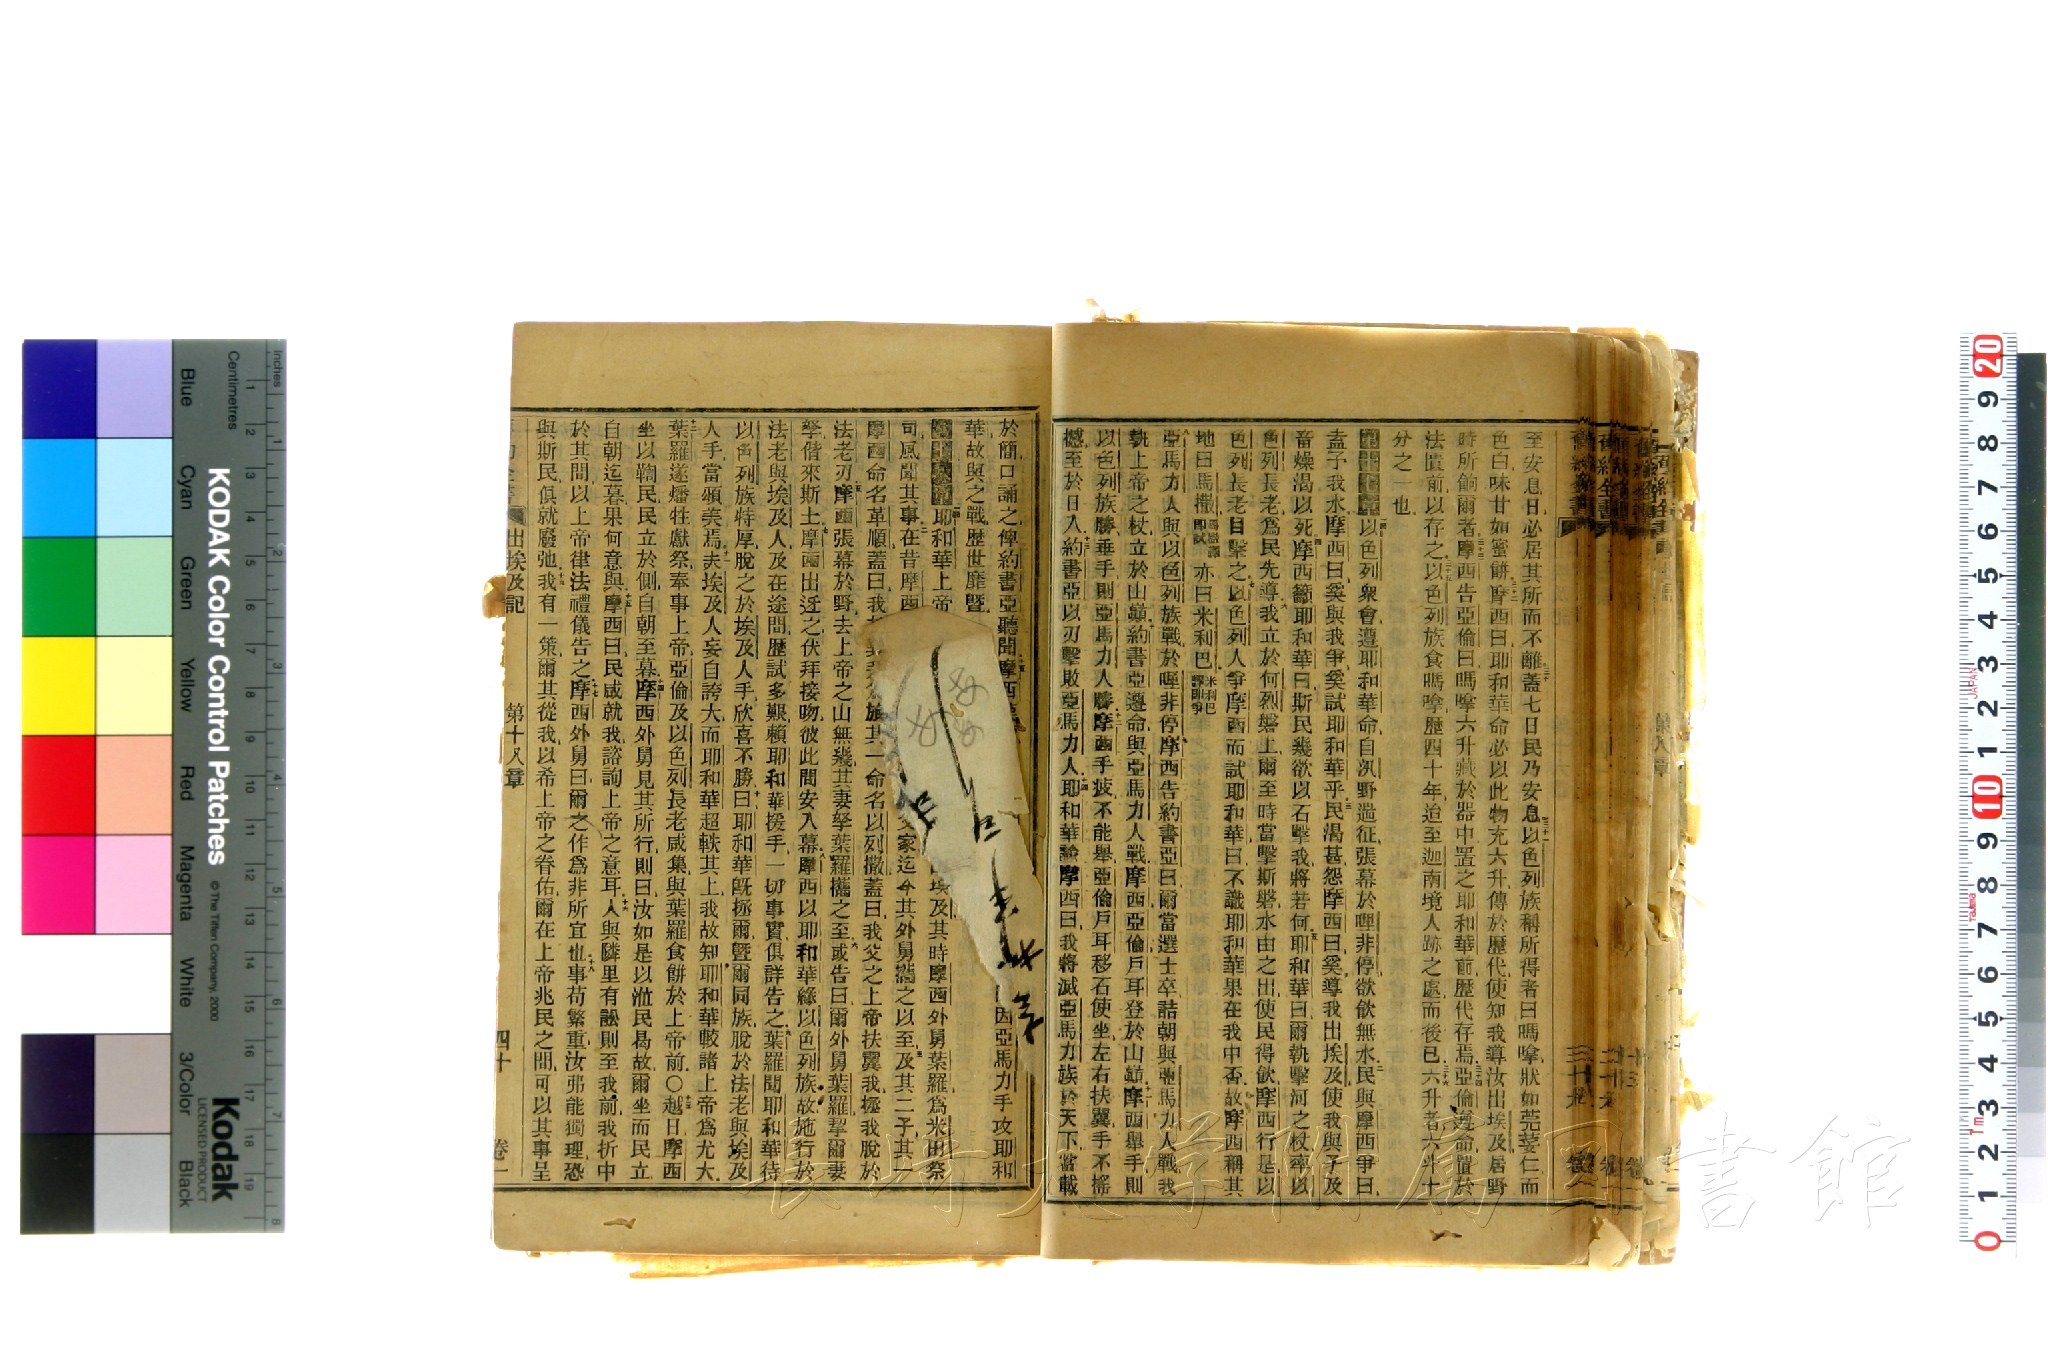 至安息日必居其所而不離蓋七日民乃安息以色列族稱所得者曰嗎嗱狀如芫荽仁而
色白味甘如蜜餅摩西曰耶和華命必以此物充六升傳於歷代使知我導汝出埃及居野
時所餉爾者摩西告亞倫曰嗎嗱六升藏於器中置之耶和華前歷代存焉亞倫遵命置於
法匱前以存之以色列族食嗎嗱歷四十年迨至迦南境人跡之處而後已六升者六斗十
分之一也
以色列衆會遵耶和華命自汛野遄征張幕於哩非停欲飲無水民與摩西爭曰
盍予我水摩西曰奚與我爭奚試耶和華乎民渴甚怨摩西曰奚導我出埃及使我與子及
畜燥渴以死摩西籲耶和華曰斯民幾欲以石擊我將若何耶和華曰爾執擊河之杖率以
色列長老爲民先導我立於何烈磐上爾至時當擊斯磐水由之出使民得飲摩西行是以
色列長老目擊之以色列人爭摩西而試耶和華曰不識耶和華果在我中否故摩西稱其
地曰馬撒馬撒譯即試亦曰米利巴米利巴譯即爭
亞馬力人與以色列族戰於哩非停摩西告約書亞曰爾當選士卒詰朝與亞馬力人戰我
執上帝之杖立於山巔約書亞遵命與亞馬力人戰摩西亞倫戶耳登於山巔摩西舉手則
以色列族勝垂手則亞馬力人勝摩西手疲不能舉亞倫戶耳移石使坐左右扶翼手不搖
撼至於日入約書亞以刃擊敗亞馬力人耶和華諭摩西曰我將滅亞馬力族於天下當載
於簡口誦之俾約書亞聽聞摩西因亞馬力手攻耶和
華故與之戰歷世靡曁
耶和華上帝埃及其時摩西外舅葉羅爲米田祭
司風聞其事在昔摩西家迄今其外舅攜之以至及其二子其一
摩西命名革順蓋曰我族其一命名以列撒蓋曰我父之上帝扶翼我拯我脫於
法老刃摩西張幕於野去上帝之山無幾其妻孥葉羅攜之至或告曰爾外舅葉羅挈爾妻
孥偕來斯土摩西出迓之伏拜接吻彼此問安入幕摩西以耶和華緣以色列族故施行於
法老與埃及人及在途間歷試多艱賴耶和華援手一切事實俱詳告之葉羅聞耶和華待
以色列族特厚脫之於埃及人手欣喜不勝曰耶和華旣拯爾曁爾同族脫於法老與埃及
人手當頌美焉夫埃及人妄自誇大而耶和華超軼其上我故知耶和華較諸上帝爲尤大
葉羅遂燔牲獻祭奉事上帝亞倫及以色列長老咸集與葉羅食餅於上帝前〇越日摩西
坐以鞫民民立於側自朝至暮摩西外舅見其所行則曰汝如是以涖民曷故爾坐而民立
自朝迄暮果何意與摩西曰民咸就我諮詢上帝之意耳人與隣里有訟則至我前我折中
於其間以上帝律法禮儀告之摩西外舅曰爾之作爲非所宜也事苟繁重汝弗能獨理恐
與斯民俱就廢弛我有一策爾其從我以希上帝之眷佑爾在上帝兆民之間可以其事呈
出埃及記 第十八章 四十 卷一
長崎大学附属図書館
KODAK Color Control Patches
© The Tiffen Company, 2000
Kodak
LICENSED PRODUCT
Inches
Centimetres
Blue
Cyan
Green
Yellow
Red
Magenta
White
3/Color
Black